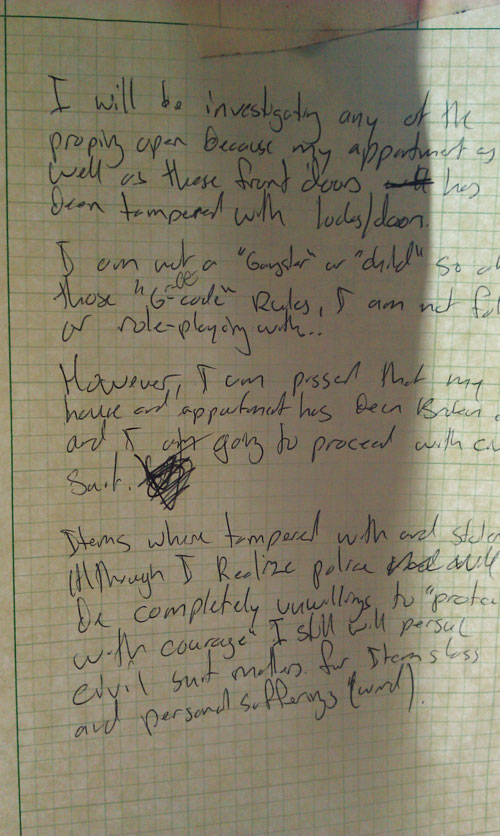 I will be investigating any of the
proping open because my appartment as
well as these front doors has
been tampered with locks/door.
I am not a "Gangster" or "child" so
those "G-code" Rules, I am not
or role-playing with..
However, I am pissed that my
house and appartment has been Broken
and I am going to proceed with
Suit.
Items where tampered with and stolen
Allthrough I Realize police will
be completely unwillings to
with courage" I still will persue
civil suit matters for Items loss
and personal sufferings (word).